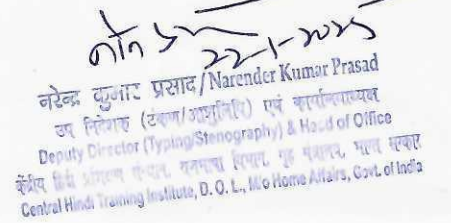 22-1-2025
नरेन्द्र कुमार प्रसाद/Narender Kumar Prasad
उप निदेशक (टंकण/आशुलिपि) एवं कार्यालयाध्यक्ष
Deputy Director (Typing/Stenography) & Head of Office
केंद्रीय हिंदी प्रशिक्षण संस्थान, राजभाषा विभाग, गृह मंत्रालय, भारत सरकार
Central Hindi Training Institute, D. O. L., M/o Home Affairs, Govt. of India